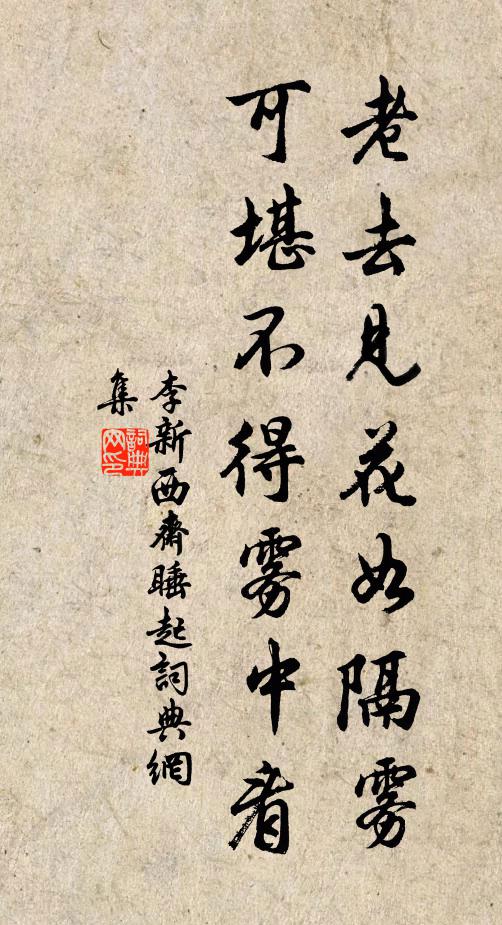 老去見花如隔雾
可堪不得雾中看
李新西齋睡起詞典網
集
詞典網印